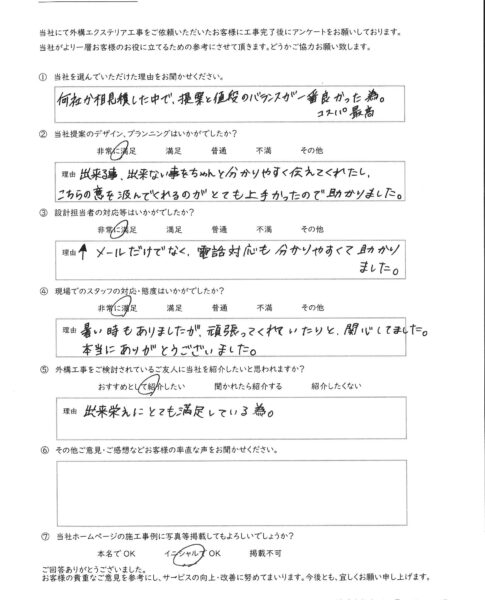 当社にて外構エクステリア工事をご依頼いただいたお客様に工事完了後にアンケートをお願いしております。
当社がより一層お客様のお役に立てるための参考にさせて頂きます。どうかご協力お願い致します。
① 当社を選んでいただけた理由をお聞かせください。
何社か相見積した中で、提案と値段のバランスが一番良かった為。
コスパ最高
② 当社提案のデザイン、プランニングはいかがでしたか?
非常に満足 満足 普通 不満 その他
理由 出来る事、出来ない事をちゃんと分かりやすく伝えてくれたし、
こちらの意を汲んでくれるのがとても上手かったので助かりました。
③ 設計担当者の対応等はいかがでしたか?
非常に満足 満足 普通 不満 その他
理由 ↑ メールだけでなく、電話対応も分かりやすくて助かり
ました。
④ 現場でのスタッフの対応・態度はいかがでしたか?
非常に満足 満足 普通 不満 その他
理由 暑い時もありましたが、頑張ってくれていたりと、関心してました。
本当にありがとうございました。
⑤ 外構工事をご検討されているご友人に当社を紹介したいと思われますか?
おすすめとして紹介したい 聞かれたら紹介する 紹介したくない
理由 出来栄えにとても満足している為。
⑥ その他ご意見・ご感想などお客様の率直な声をお聞かせください。
⑦ 当社ホームページの施工事例に写真等掲載してもよろしいでしょうか?
本名で OK イニシャルで OK 掲載不可
ご回答ありがとうございました。
お客様の貴重なご意見を参考にし、サービスの向上・改善に努めてまいります。今後とも、宜しくお願い申し上げます。